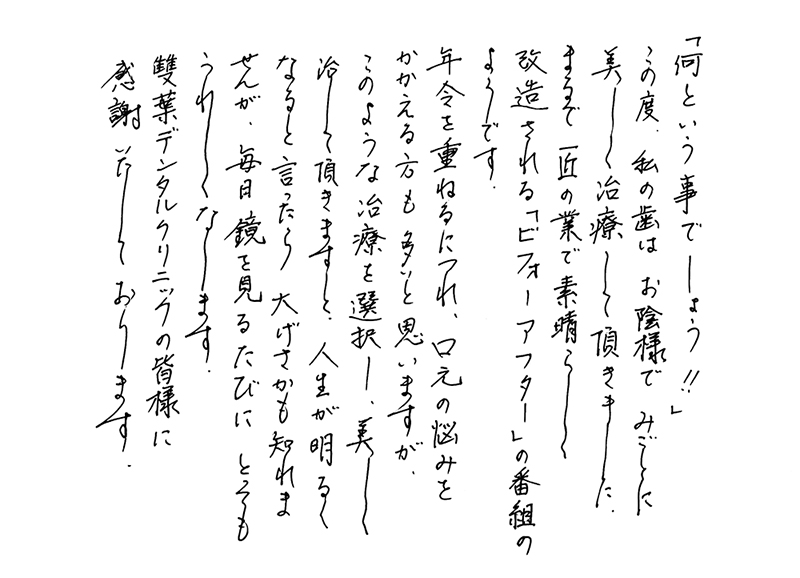 「何という事でしょう!!」
この度、私の歯は お陰様で みごとに
美しく治療して頂きました。
まるで 匠の業で素晴らしく
改造される「ビフォーアフター」の番組の
ようです。
年令を重ねるにつれ、口元の悩みを
かかえる方も多いと思いますが、
このような治療を選択し、美しく
治して頂きますと、人生が明るく
なると言ったら 大げさかも知れま
せんが、毎日鏡を見るたびに とても
うれしくなります。
雙葉デンタルクリニックの皆様に
感謝いたしております。